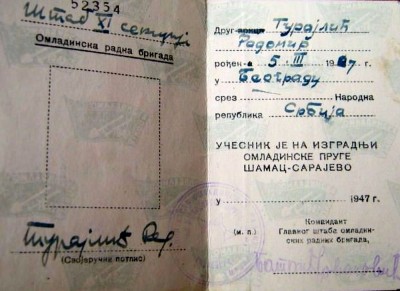 52354
Штаб XI секције
Омладинска радна бригада
Турајлић Рад.
(Својеручни потпис)
Друг-арица Турајлић
Радомир
рођен-а 5. III 1927 г.
у Београду
срез Народна
република Србија
УЧЕСНИК ЈЕ НА ИЗГРАДЊИ
ОМЛАДИНСКЕ ПРУГЕ
ШАМАЦ-САРАЈЕВО
у 1947 г.
Командант
(м. п.) Главног штаба омладин-
ских радних бригада,